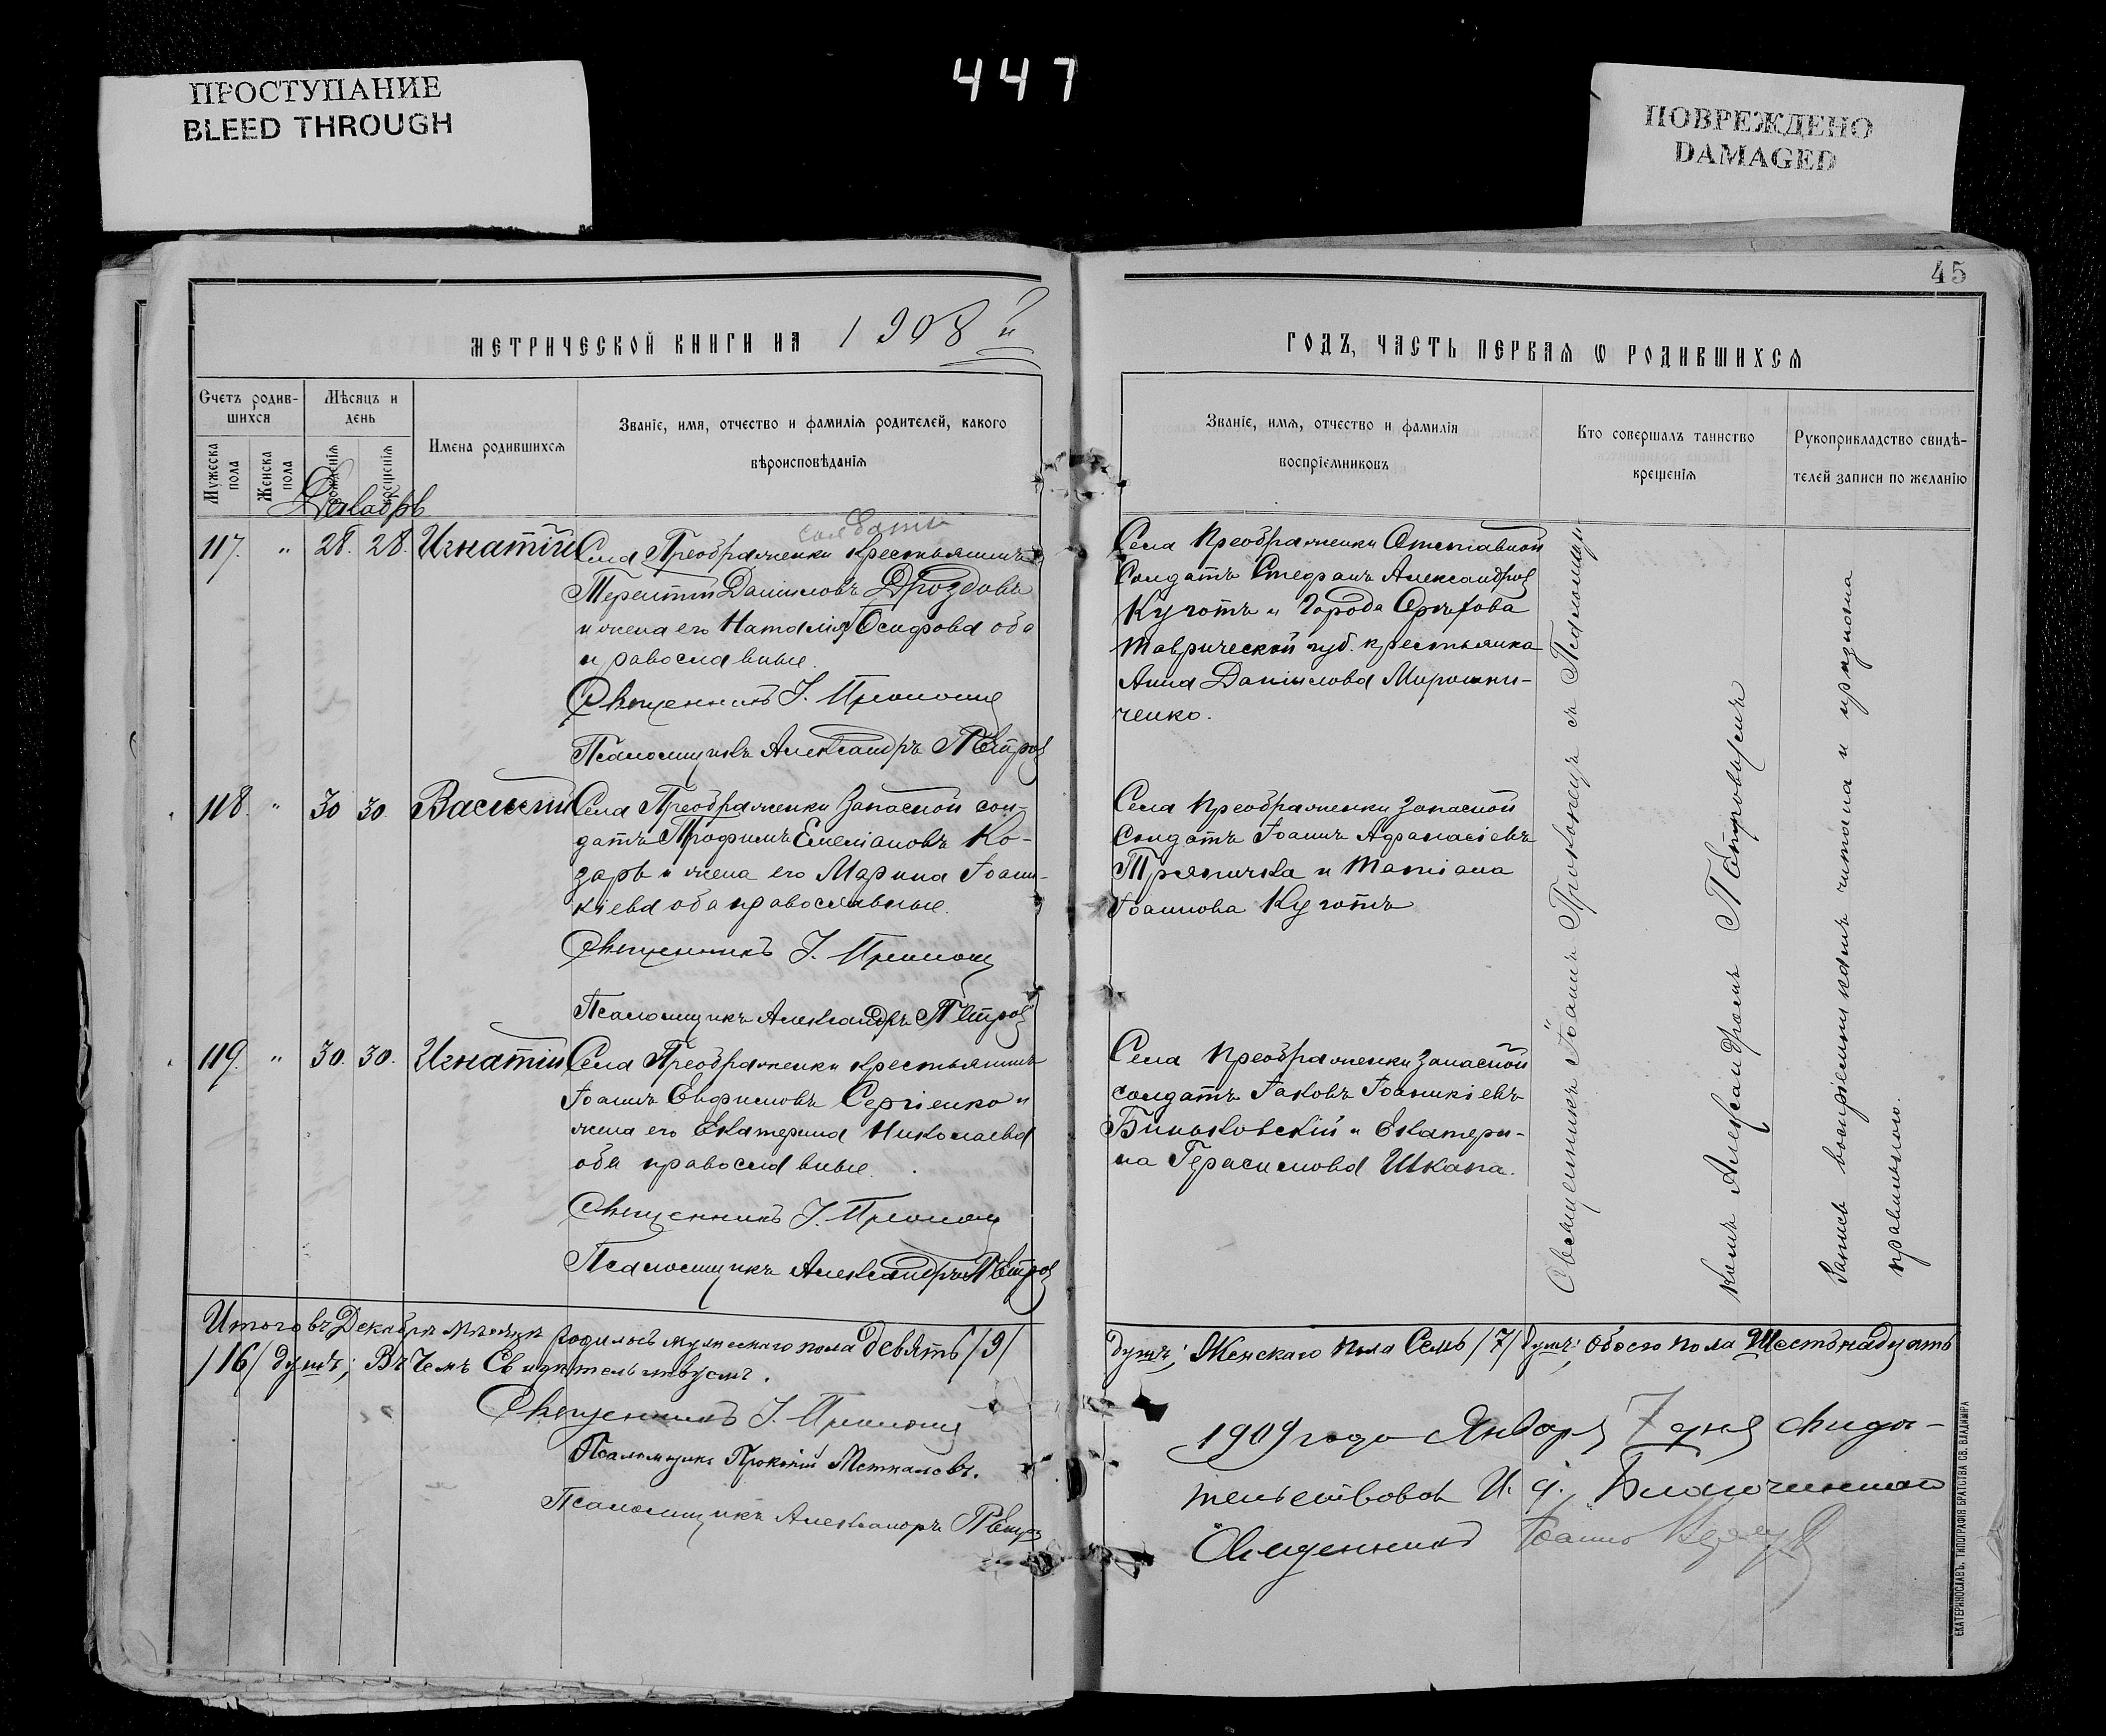 447
ПРОСТУПАНИЕ
BLEED THROUGH
ПОВРЕЖДЕНО
DAMAGED
45
МЕТРИЧЕСКОЙ КНИГИ НА 1908 й
ГОДЪ, ЧАСТЬ ПЕРВАЯ Ѡ РОДИВШИХСЯ
Счетъ родив-
шихся
Мужеска
пола
Женска
пола
Мѣсяцъ и
день
рожденія
крещенія
Имена родившихся
Званіе, имя, отчество и фамилія родителей, какого
вѣроисповѣданія
Званіе, имя, отчество и фамилія
воспріемниковъ
Кто совершалъ таинство
крещенія
Рукоприкладство свидѣ-
телей записи по желанію
Декабрь
117. " 28. 28. Игнатій
Села Преображенки крестьянинъ
Терентій Даниловъ Дроздовъ
и жена его Наталія Осифова оба
православные.
Священникъ І.
Псаломщикъ Александръ Петров
Села Преображенки Отставной
Солдатъ Стефанъ Александров
Куготъ и Города Орѣхова
Таврической губ. крестьянка
Анна Данiилова Мирошни-
ченко.
118. " 30 30. Василій
Села Преображенки Запасной сол-
датъ Трофимъ Емеліановъ Ко-
зарь и жена его Марина Іоани-
кіева оба православные.
Священникъ І.
Псаломщикъ Александръ Петров
Села Преображенки запасной
Солдатъ Іоаннъ Афанасіевъ
Тряпичка и Татіана
Іоаннова Куготъ
119. " 30. 30. Игнатій
Села Преображенки крестьянинъ
Іоаннъ Евфимовъ Сергіенко и
жена его Екатерина Николаева
оба православные.
Священникъ І.
Псаломщикъ Александръ Петров
Села Преображенки запасной
солдатъ Іаковъ Іоаникіевъ
Биньковскій и Екатери-
на Герасимова Шкапа.
Священникъ Іоаннъ съ Псаломщи-
комъ Александромъ Петровымъ
Запись воспріемникамъ читана и признана
правильною.
Итого въ Декабрѣ мѣсяцѣ родилось мужескаго пола девять /9/
душъ; Женскаго пола Семь /7/ душъ; обоего пола Шестьнадцать
/16/ душъ; Въ чемъ Свидѣтельствуемъ.
Священникъ І.
Псаломщикъ Прокопій
Псаломщикъ Александръ Петров
1909 года Января 7 дня свидѣ-
тельствовал И. д. Благочиннаго
Священникъ Іоаннъ
ЕКАТЕРИНОСЛАВЪ. ТИПОГРАФІЯ БРАТСТВА СВ. ВЛАДИМІРА